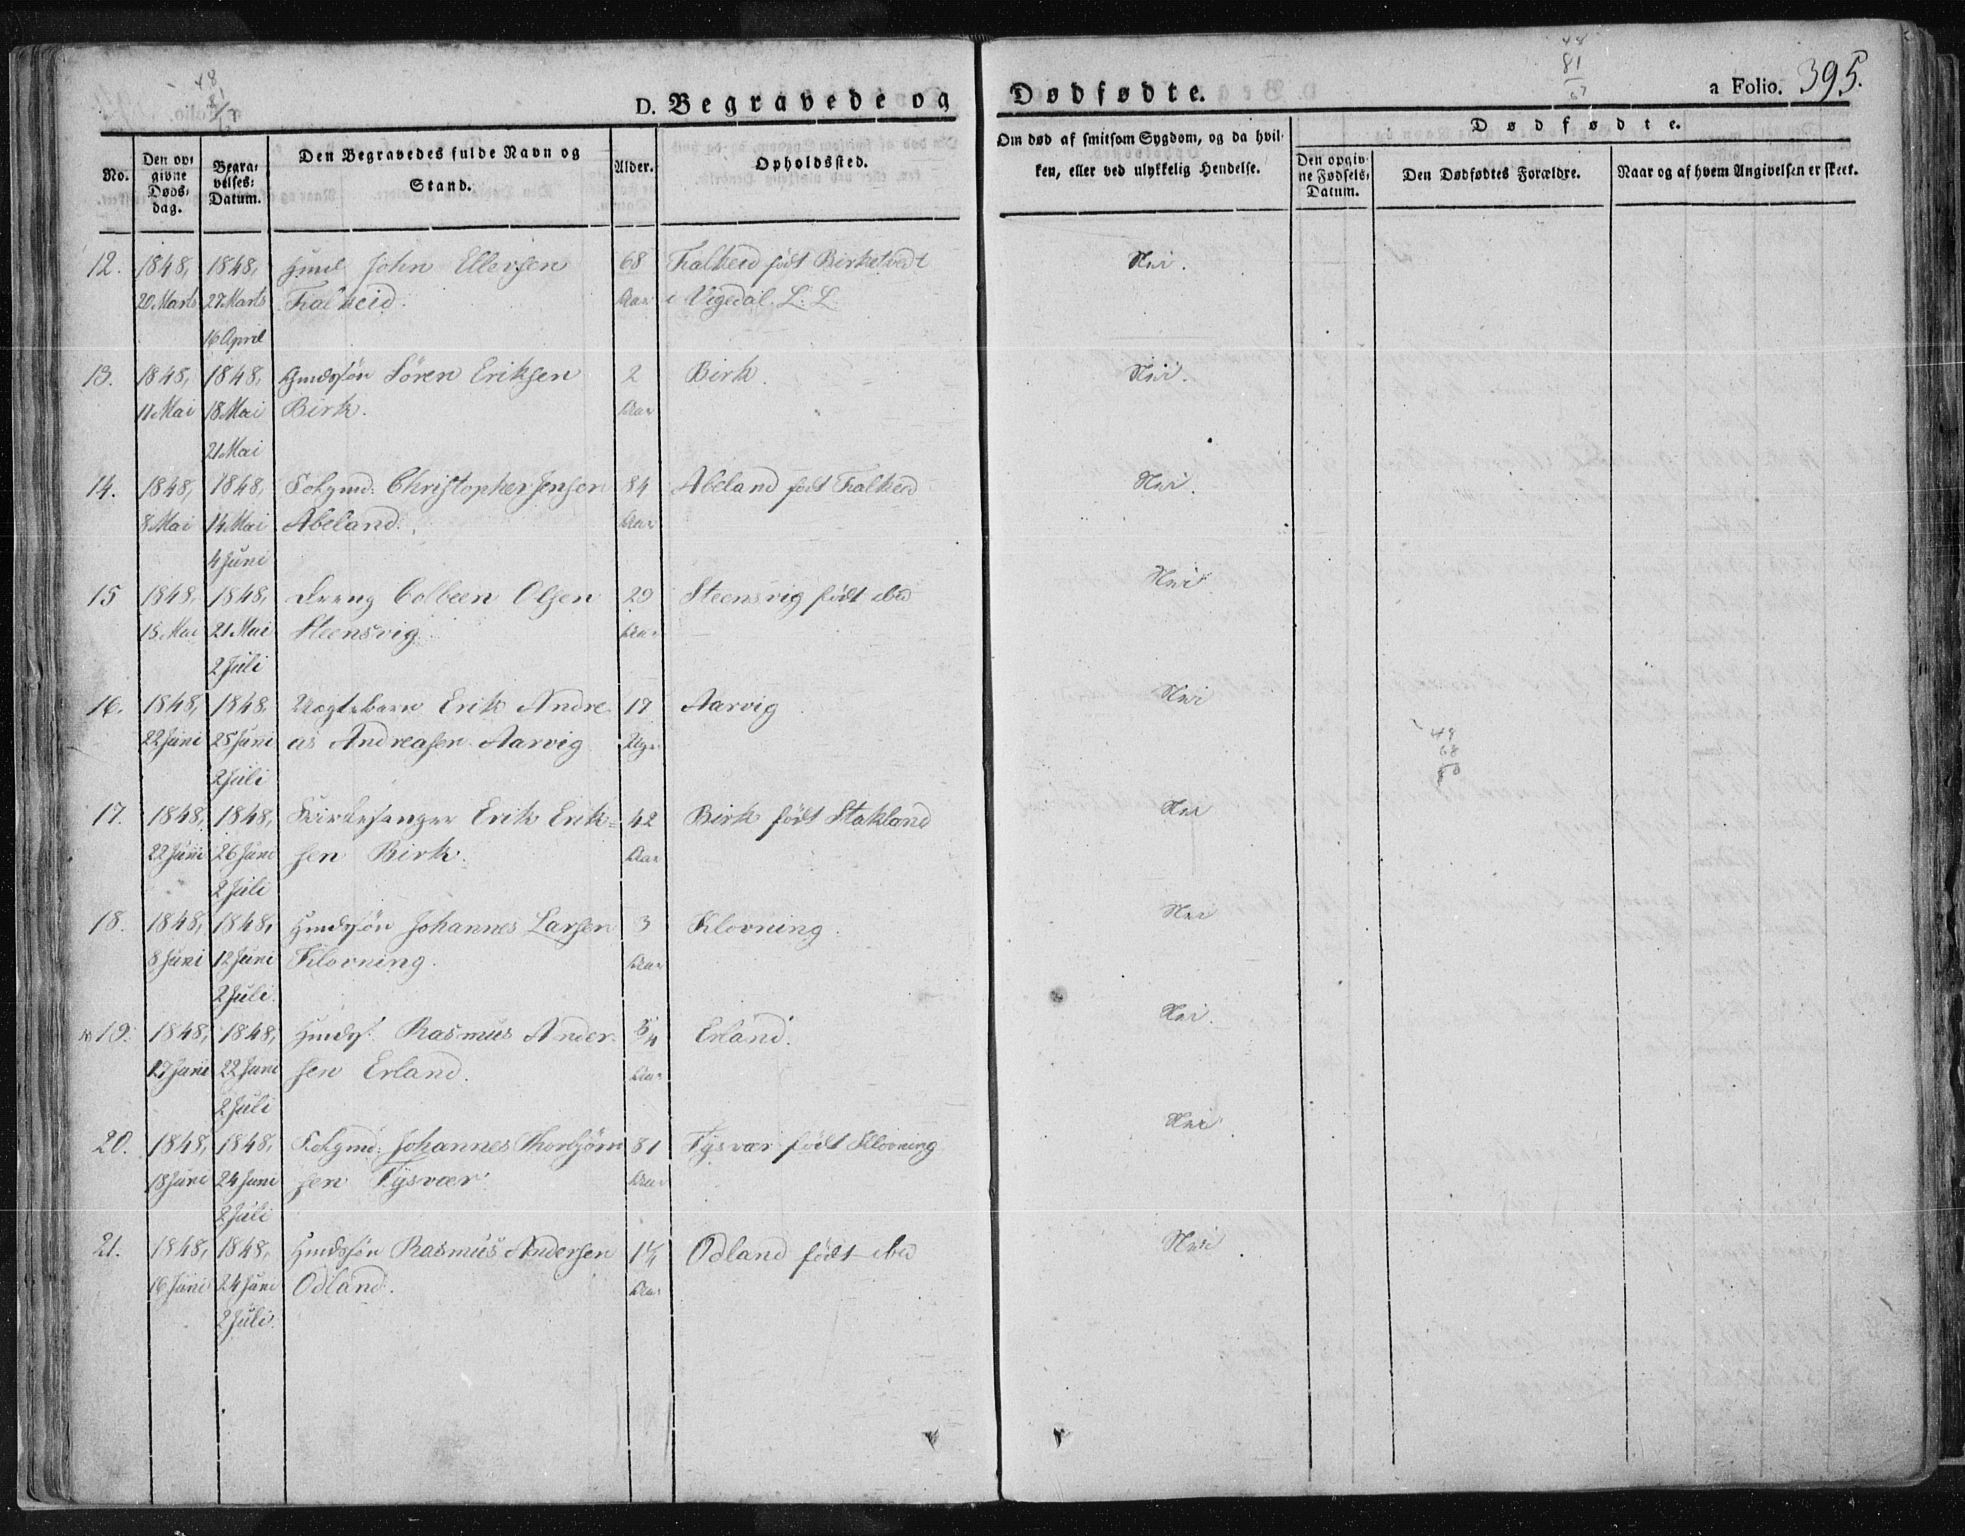 D. Begravede og Dødfødte.
a Folio. 395.
No.
Den opgivne Døds-dag.
Begravelses-Datum.
Den Begravedes fulde Navn og Stand.
Alder.
Opholdssted.
Om død af smitsom Sygdom, og da hvilken, eller ved ulykkelig Hendelse.
Dødfødte.
Den opgivne Fødsels-Datum.
Den Dødfødtes Forældre.
Naar og af hvem Angivelsen er skeet.
12. 1848, 1848, John Ellersen 68 Falkeid født Birketvedt Nei.
20 Marts 27 Marts Falkeid. Aar i Vigedal. L. L.
16 April
13. 1848, 1848, Gmdssøn Sören Eriksen 2 Birk. Nei.
11 Mai 18 Mai Birk. Aar
21 Mai
14. 1848, 1848, Folgmd. Christopher Jensen 84 Abeland født Falkeid Nei.
8 Mai 14 Mai Abeland. Aar
4 Juni
15 1848, 1848, Dreng Colbeen Olsen 29 Steensvig født ibid Nei
15 Mai 21 Mai Steensvig. Aar
2 Juli
16. 1848, 1848 Erik Andre 17 Aarvig Nei
22 Juni 25 Juni as Andreasen Aarvig Uger
2 Juli
17. 1848, 1848, Kirkesanger Erik Erik= 42 Birk født Stakland Nei
22 Juni 26 Juni sen Birk. Aar
2 Juli
18. 1848, 1848, Gmdssøn Johannes Larsen 3 Klovning. Nei
8 Juni 12 Juni Klovning. Aar
2 Juli.
19. 1848, 1848, Gmdss. Rasmus Ander 5/4 Erland. Nei.
17 Juni 22 Juni sen Erland. Aar
2 Juli
20. 1848, 1848, Folgmd. Johannes Thorbjørn 81 Tysvær født Klovning Nei
18 Juni 24 Juni sen Tysvær Aar
2 Juli
21. 1848, 1848, Gmdssøn Rasmus Andersen 1¼ Odland født ibid Nei.
16 Juni 24 Juni Odland. Aar
2 Juli.